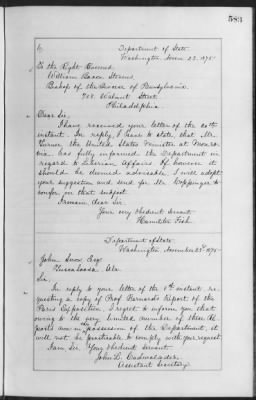 583
Department of State
Washington, Novr. 23, 1875.
To the Right Reverend
William Bacon Stevens
Bishop of the Diocese of Pennsylvania
708 Walnut Street
Philadelphia
Dear Sir,
I have received your letter of the 20th
instant. In reply, I have to state, that Mr.
Turner, the United States Minister at Monro-
via has fully informed the Department in
regard to Liberian affairs. If, however it
should be deemed advisable, I will adopt
your suggestion and send for Mr. to
confer on that subject.
I remain, dear Sir
Your very obedient servant
Hamilton Fish
Department of State
Washington November 23d 1875
John Snow Esq.
Tuscaloosa, Ala
Sir
In reply to your letter of the instant re-
questing a copy of Prof Barnard's Report of the
Paris Exposition I regret to inform you that
owing to the very limited number of these Re-
ports now in the possession of the Department, it
will not be practicable to comply with your request
I am Sir Your obedient servant
John L. Cadwalader,
Assistant Secretary